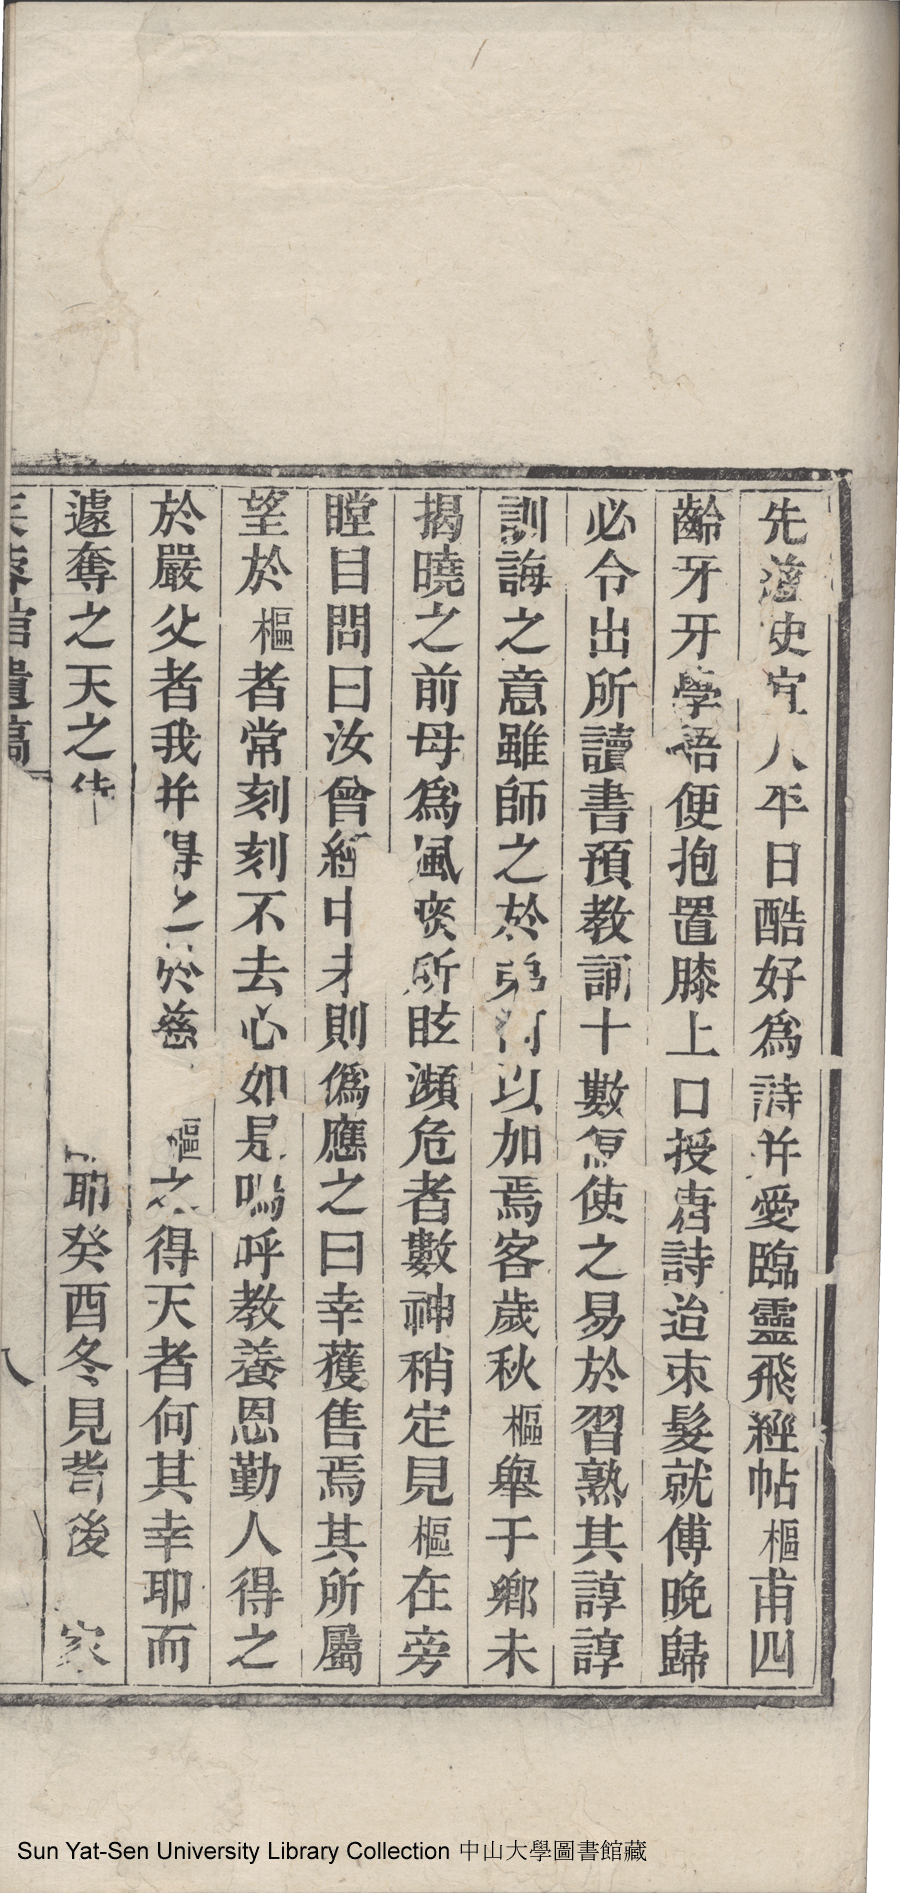 先蓬史宜人平日酷好爲詩并愛臨靈飛經帖樞甫四
齡牙牙學語便抱置膝上口授唐詩迨束髮就傅晚歸
必令出所讀書預教誦十數徧使之易於習熟其諄諄
訓誨之意雖師之於弟何以加焉客歲秋樞舉于鄉未
揭曉之前母爲風痰所眩瀕危者數神稍定見樞在旁
瞠目問曰汝曾經中未則僞應之曰幸獲售焉其所屬
望於樞者常刻刻不去心如是嗚呼教養恩勤人得之
於嚴父者我并得之於慈樞之得天者何其幸耶而
遽奪之天之耶癸酉冬見背後家
芙蓉館遺稿
八
Sun Yat-Sen University Library Collection 中山大學圖書館藏